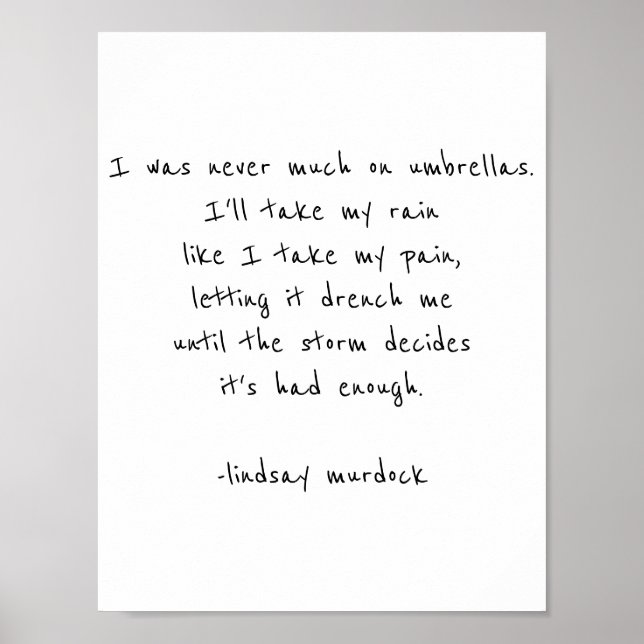 I was never much on umbrellas.
I'll take my rain
like I take my pain,
letting it drench me
until the storm decides
it's had enough.
-lindsay murdock